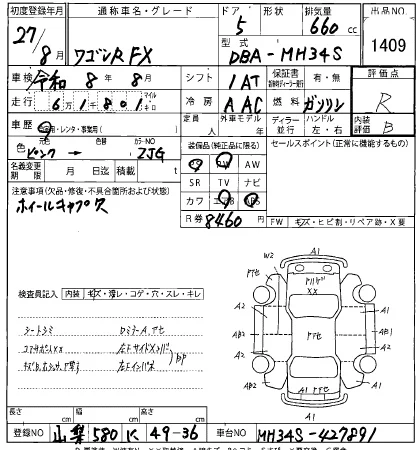 初度登録年月 通称車名・グレード ドア 形状 排気量 出品NO
27/8月 ワゴンR FX 5 660cc 1409
型式 DBA-MH34S
車検 令和 8年 8月 シフト 1AT 保証書 有・無 評価点
走行 6万1千801 マイル キロ 冷房 AAC 燃料 ガソリン R
車歴 自家用・レンタ・事業用( ) 定員 人 外車モデル 年 ディーラー 並行 ハンドル 左・右 内装評価 B
色 ピンク → 色替 カラーNO ZJG 装備品(純正品に限る) セールスポイント(正常に機能するもの)
名義変更期限 月 日 積載 t PS PW AW
SR TV ナビ
注意事項(欠品・修復・不具合箇所および状態) カワ エアB ABS
ホイールキャップ欠 R券 8460円
FW キズ・ヒビ割・リペア跡・X要
検査員記入 内装 キズ・汚レ・コゲ・穴・スレ・キレ
シートシミ DミラーA,アセ
左FサイドメンバP
左Fインパネ
bp
A1
W2
アセ
トリカゲ
XX
A2 A1
A2 アセ AB1
AB2 AB2
A1 A1
A1
長さ cm 幅 cm 高さ cm
登録NO 山梨 580 に 49-36 車台NO MH34S-427891